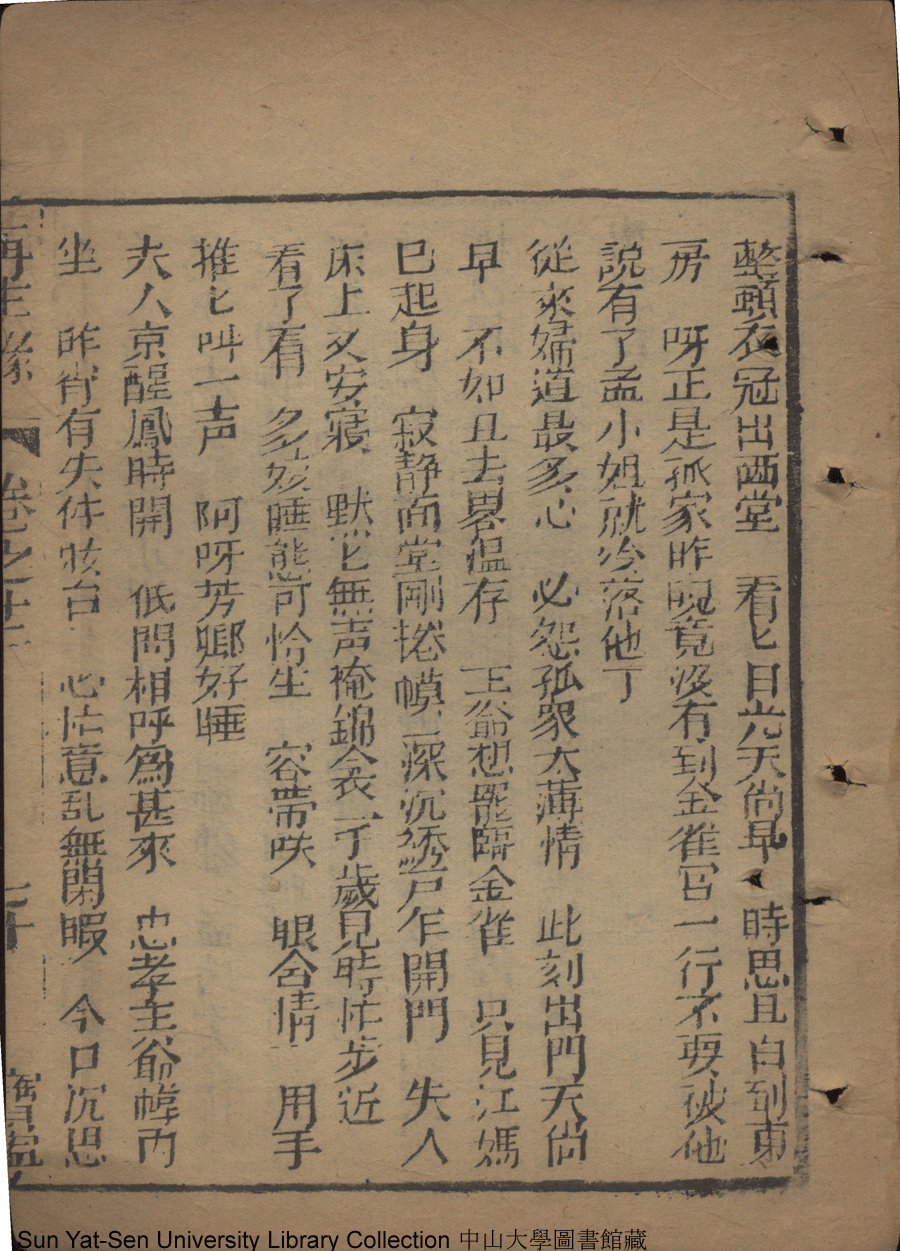 整頓衣冠出西堂　看匕日光天尚早　時思且自到東
房　呀正是孤家昨晚竟沒有到金雀宮一行不要被他
說有了孟小姐就冷落他了
從來婦道最多心　必怨孤眾太薄情　此刻出門天尚
早　不如且去畧溫存　王爺想罷臨金雀　只見江媽
已起身　寂静南堂剛捲幙　深沉綉戶乍開門　夫人
床上又安寢　默匕無声掩錦衾　千歲見時忙步近
看了看　多姣睡態可怜生　容帶咲　眼含情　用手
推匕叫一声　阿呀芳卿好睡
夫人京醒鳳時開　低問相呼爲甚來　忠孝王爺幃內
坐　昨宵有失体　台　心忙意乱無閑暇　今日沉思
再生緣　卷之十二　七十
Sun Yat-Sen University Library Collection 中山大學圖書館藏